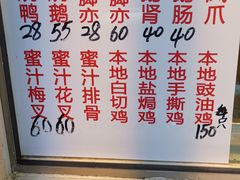 鸭
28
鹅
55
亦
28
亦
60
肾
40
肠
40
爪
蜜汁梅叉
60
蜜汁花叉
60
蜜汁排骨
本地白切鸡
本地盐焗鸡
本地手撕鸡
本地豉油鸡
150